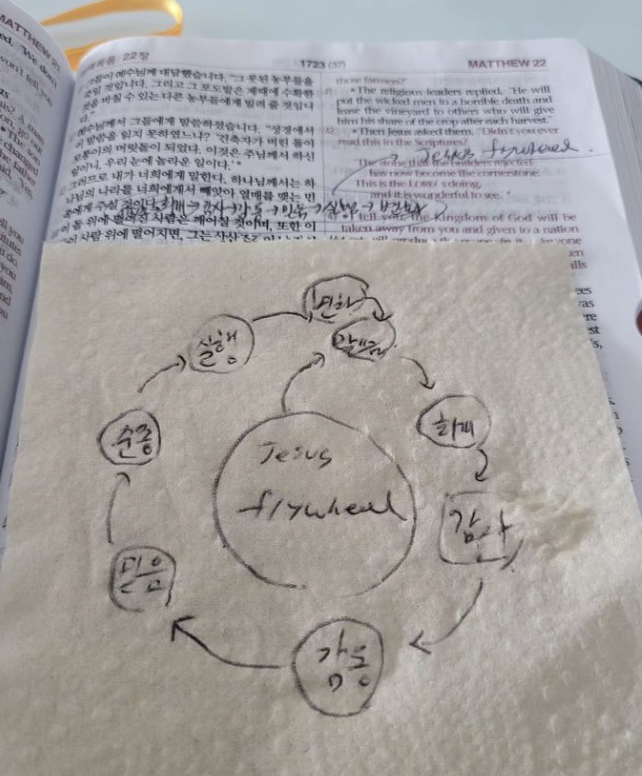 MATTHEW 2
ed. "We don't
22장
1723 (37)
MATTHEW 22
예수님께 대답했습니다. "그 못된 농부들을
것입니다. 그리고 그 포도밭은 제때에 수확한
바칠 수 있는 다른 농부들에게 빌려 줄 것입니
다."
예수님께서 그들에게 말씀하셨습니다. "성경에서
이 말씀을 읽지 못하였느냐? '건축자가 버린 돌이
모퉁이의 머릿돌이 되었다. 이것은 주님께서 하신
일이니, 우리 눈에 놀라운 일이다.'
그러므로 내가 너희에게 말한다. 하나님께서는 하
나님의 나라를 너희에게서 빼앗아 열매를 맺는 민
족에게 주실 것이다.
이 돌 위에 떨어지는 사람은 깨어질 것이며, 또한 이
사람 위에 떨어지면, 그는
those farmers?"
The religious leaders replied, "He will
put the wicked men to a horrible death and
lease the vineyard to others who will give
him his share of the crop after each harvest."
Then Jesus asked them, "Didn't you ever
read this in the Scriptures?
'The stone that the builders rejected
has now become the cornerstone.
This is the LORD's doing,
and it is wonderful to see.'
I tell you, the Kingdom of God will be
taken away from you and given to a nation
→ Jesus flywheel
회개 → 감사 → 감동 → 믿음 → 실행 → 변화
변화
실행
회개
순종
감사
Jesus
flywheel
믿음
감동